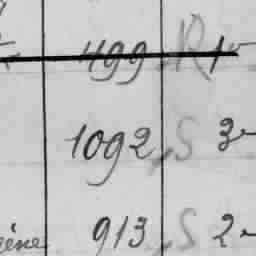 499 R 1
1092 S 3
913 S 2